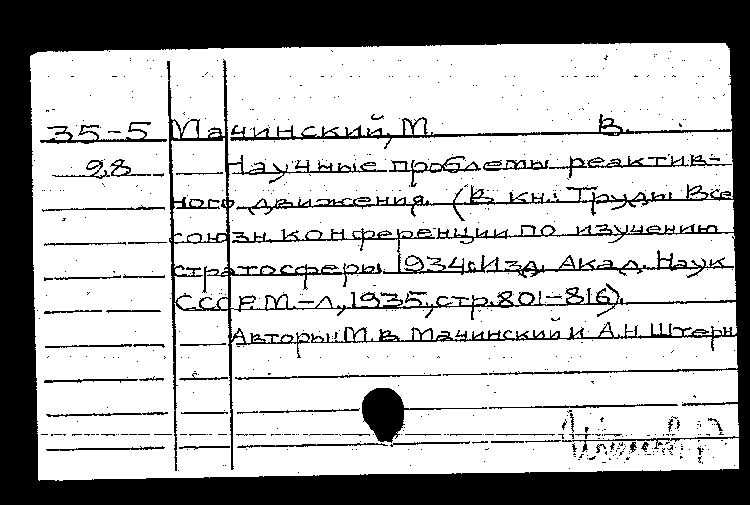 35-5 Мачинский, М. В.
28 Научные проблемы реактив-
ного движения. (В кн.: Труды Все
союзн. конференции по изучению
стратосферы 1934г. Изд. Акад. Наук
СССР. М.-Л., 1935, стр. 801-816).
Авторы: М. В. Мачинский и А. Н. Штерн